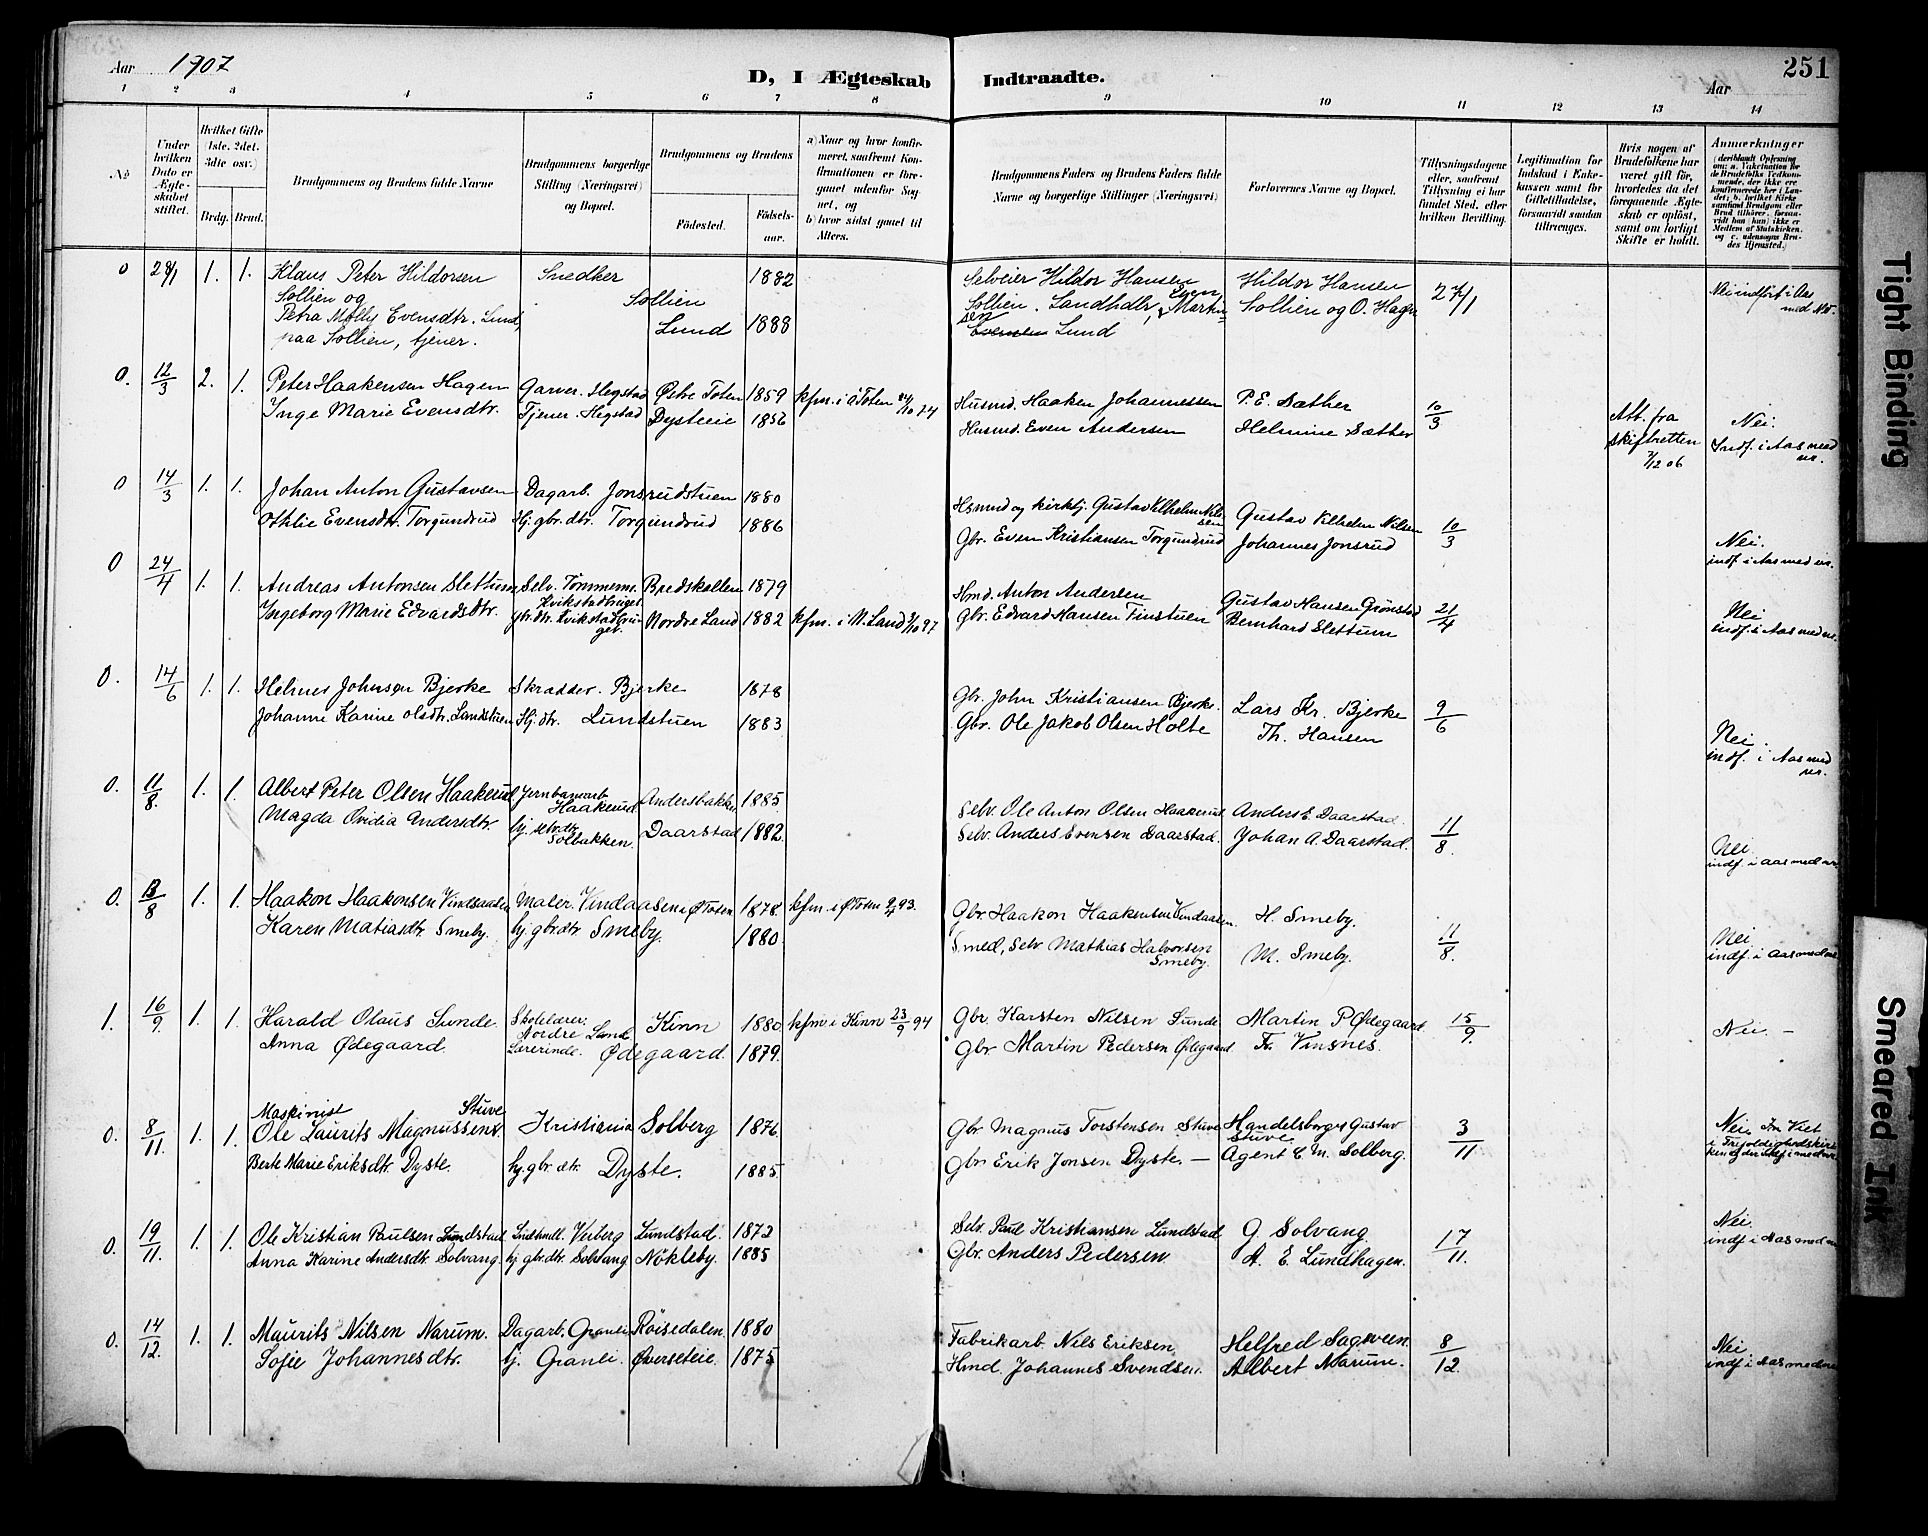 Aar 1907
D, I Ægteskab Indtraadte.
251
Aar
1 2 3 4 5 6 7 8 9 10 11 12 13 14
No
Under hvilken Dato er Ægteskabet stiftet.
Hvilket Gifte (1ste, 2det, 3dte osv.)
Brdg. Brud.
Brudgommens og Brudens fulde Navne
Brudgommens borgerlige Stilling (Næringsvei) og Bopæl.
Brudgommens og Brudens
Födested. Födsels-aar.
a) Naar og hvor konfirmeret, saafremt Konfirmationen er foregaaet udenfor Sognet, og b) hvor sidst gaaet til Alters.
Brudgommens Faders og Brudens Faders fulde Navne og borgerlige Stillinger (Næringsvei)
Forlovernes Navne og Bopæl.
Tillysningsdagene eller, saafremt Tillysning ei har fundet Sted, efter hvilken Bevilling.
Legitimation for Indskud i Enkekassen samt for Giftetilladelse, forsaavidt saadan tiltrænges.
Hvis nogen af Brudefolkene har været gift för, hvorledes da det foregaaende Ægteskab er oplöst, samt om lovligt Skifte er holdt.
Anmærkninger
0 28/1 1. 1. Klaus Peter Hildorsen Snedker 1882 Selveier Hildor Hansen Hildor Hansen 27/1 Nei indført i Aas
Sollien og Sollien Sollien. Landhdlr, Even Martin- Sollien og O. Hagen med No.
Petra Molly Evensdtr. Lund, Lund 1888 sen Evensen Lund
paa Sollien, tjener.
0. 12/3 2. 1. Peter Haakensen Hagen Garver. Hegstad Østre Toten 1859 kfm. i Ø Toten 74 Husmd. Haaken Johannessen P. E. Sæther 10/3 Att. fra Nei.
Inge Marie Evensdtr. Tjener. Hegstad Dysteeie 1856 Husmd. Even Andersen Helmine Sæther skifteretten 7/12 06 Indf. i Aas med nr.
0 14/3 1. 1. Johan Anton Gustavsen Dagarb. Jonsrudstuen 1880 Hsmnd og kirktj. Gustav Vilhelm Nilssen Gustav Vilhelm Nilsen 10/3 Nei.
Othlie Evensdtr. Torgundrud Hj. gbr. dtr. Torgundrud 1886 Gbr. Even Kristiansen Torgundrud Johannes Jonsrud indf. i Aas med nr.
0 24/4 1. 1. Andreas Antonsen Slettum Selv. Tømmerm. Bredskallen 1879 Hmd. Anton Andersen Gustav Hansen Grønstad 21/4 Nei
Kvikstadhuget
Ingeborg Marie Edvardsdtr. gbr. dtr. Nordre Land 1882 kfm. i N. Land 3/10 97 Gbr. Edvard Hansen Tinstuen Bernhard Slettum indf. i Aas med nr.
0. 14/6 1. 1. Helmer Johnsen Bjerke Skradder. Bjerke 1878 Gbr. John Kristiansen Bjerke. Lars Kr. Bjerke 9/6 Nei.
Johanne Karine Olsdtr. Lundstuen Hj. dtr. Lundstuen 1883 Gbr. Ole Jakob Olsen Holte Th. Hansen indf. i Aas med nr.
0. 11/8. 1. 1. Albert Peter Olsen Haakerud Jernbanearb. Haakerud Andersbakken 1885 Selv. Ole Anton Olsen Haakerud Anders E Daarstad. 11/8. Nei
Magda Ovidia Andersdtr. hj. selv. dtr. Solbakken. Daarstad 1882. Selv. Anders Evensen Daarstad. Johan A. Daarstad. indf. i Aas med nr.
0. 13/8 1. 1. Haakon Haakonsen Vindaasen Maler. Vindaasen i Ø Toten 1878. kfm. i Ø Toten 9/4 93. Gbr. Haakon Haakensen Vindaasen H. Smeby. 11/8. Nei
Karen Matiasdtr. Smeby. hj. gbr. dtr. Smeby. 1880. Smed, Selv. Mathias Halvorsen Smeby. M. Smeby. indf. i Aas med nr.
1. 16/9. 1. 1. Harald Olaus Sunde. Skolelærer. Nordre Land Kinn 1880. kfm. i Kinn 23/9 94 Gbr. Karsten Nilsen Sunde Martin P Ødegaard. 15/9. Nei. –
Anna Ødegaard. Lærerinde. Ødegaard. 1879. Gbr Martin Pedersen Ødegaard. Fr. Vinsnes.
0. 8/11. 1. 1. Maskinist Stuve
Ole Laurits Magnussen Kristiania Solberg 1876. Gbr Magnus Torstensen Stuve Handelsborger Gustav Stuve. 3/11 Nei.
Berte Marie Eriksdtr. Dyste. hj. gbr. dtr. Dyste. 1885. Gbr Erik Jonsen Dyste. – Agent C. M. Solberg. i Trefoldighedskirken
0. 19/11. 1. 1. Ole Kristian Paulsen Lundstad Landhandl. Verberg Lundstad. 1872 Selv. Paul Kristiansen Lundstad G. Solvang. 17/11. Nei.
Anna Karine Andersdtr. Solvang. hj. gbr. dtr. Solvang Nökleby. 1885 Gbr. Anders Pedersen. A. E. Lundhagen. indf. i Aas med nr
0. 14/12. 1. 1. Maurits Nilsen Narum. Dagarb. Granli Röisedalen. 1880 Fabrikarb. Nils Eriksen. Helfred Sagveen. 8/12 Nei.
Sofie Johannesdtr. hj. Granli. Øverseteie. 1875 Hmd. Johannes Svendsen. Albert Narum. indf. i Aas med nr
Tight Binding
Smeared Ink